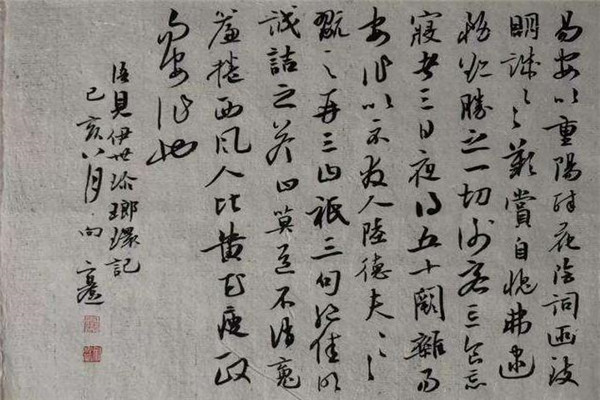 易安以重陽醉花陰詞函致
明誠々々歎賞自愧弗逮
務欲勝之一切謝客忘食忘
寢者三日夜得五十闋雜易
安作以示友人陸德夫々々
翫之再三曰祇三句絕佳明
誠詰之答曰莫道不消魂
簾捲西風人比黃花瘦政
易安作也
語見伊世珍瑯環記
己亥八月向